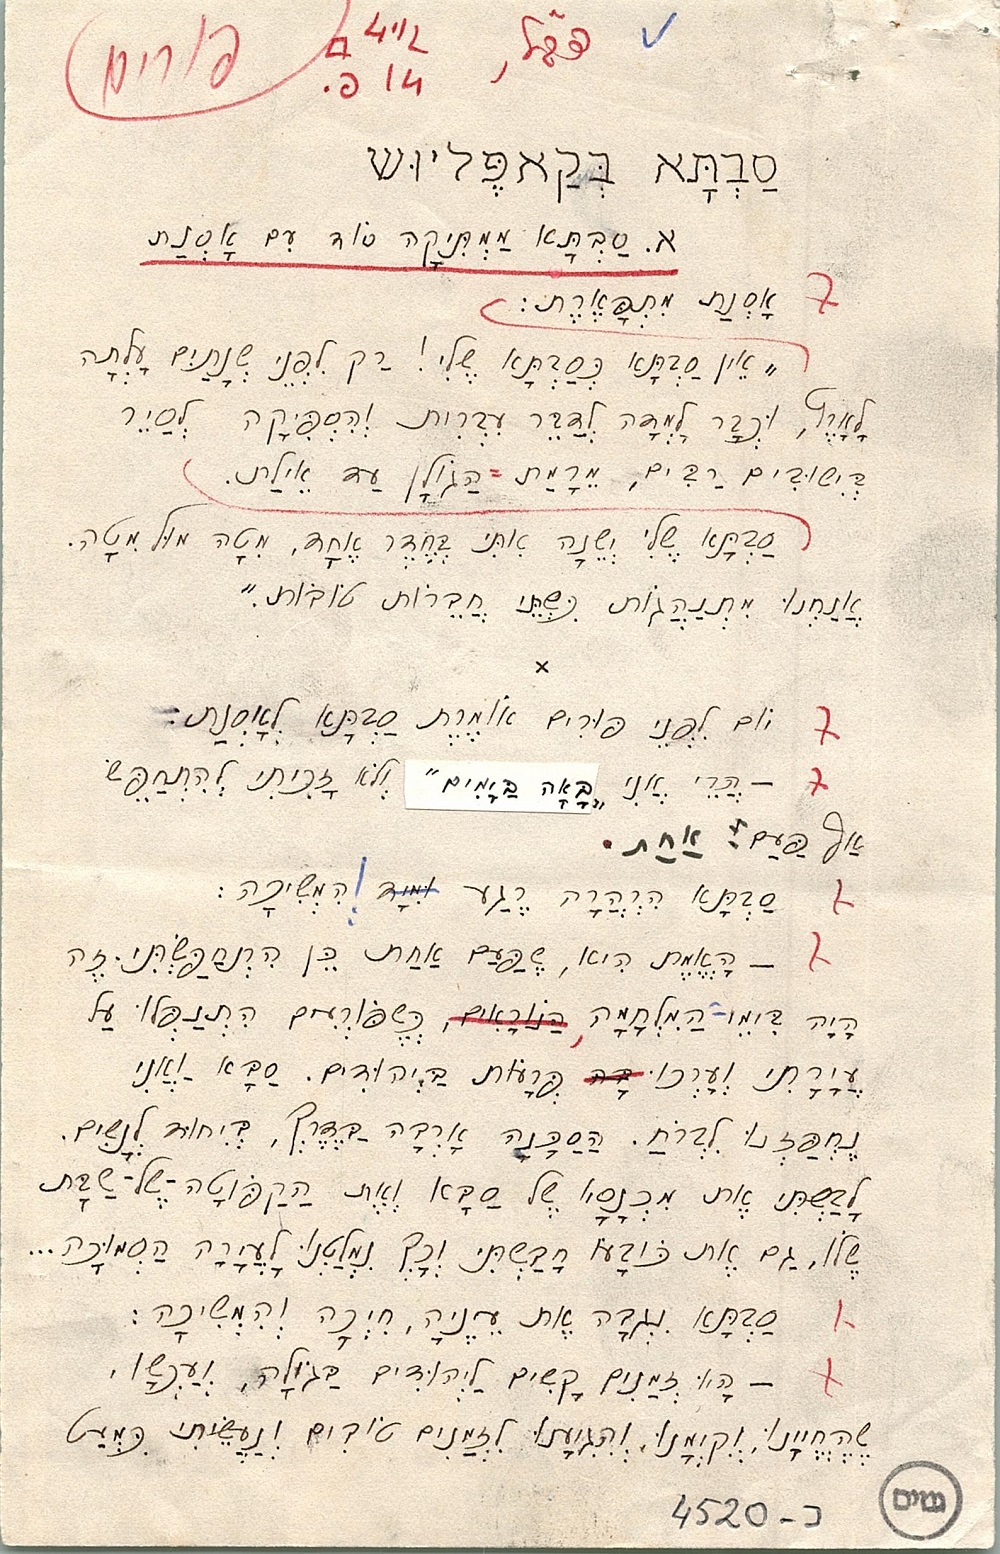 פורים
14 פ.
סַבְתָּא בְּקַאפֶּלְיוּש
א. סַבְתָּא מַמְתִּיקָה סוֹד עִם אָסְנַת
אָסְנַת מִתְפָּאֶרֶת:
"אֵין סַבְתָּא כְּסַבְתָּא שֶׁלִּי! רַק לִפְנֵי שְׁנָתַיִם עָלְתָה
לָאָרֶץ, וּכְבָר לָמְדָה לְדַבֵּר עִבְרִית וְהִסְפִּיקָה לְסַיֵּר
בְּיִשּׁוּבִים רַבִּים, מֵרָמַת=הַגּוֹלָן עַד אֵילַת.
סַבְתָּא שֶׁלִּי יְשֵׁנָה אִתִּי בְּחֶדֶר אֶחָד, מִטָּה מוּל מִטָּה.
אֲנַחְנוּ מִתְנַהֲגוֹת כִּשְׁתֵּי חֲבֵרוֹת טוֹבוֹת."
x
יוֹם לִפְנֵי פּוּרִים אוֹמֶרֶת סַבְתָּא לְאָסְנַת:
– הֲרֵי אֲנִי "בָּאָה בַּיָּמִים" וְלֹא זָכִיתִי לְהִתְחַפֵּשׂ
אַף פַּעַם אַחַת.
סַבְתָּא הִרְהֲרָה רֶגַע וּמִיָּד הִמְשִׁיכָה:
– הָאֱמֶת הִיא, שֶׁפַּעַם אַחַת כֵּן הִתְחַפַּשְׂתִּי. זֶה
הָיָה בִּימֵי-הַמִּלְחָמָה הַנּוֹרָאִים, כְּשֶׁפּוֹרְעִים הִתְנַפְּלוּ עַל
עֲיָרָתִי וְעָרְכוּ בָּהּ פְּרָעוֹת בַּיְּהוּדִים. סַבָּא וַאֲנִי
נֶחְפַּזְנוּ לִבְרֹחַ. הַסַּכָּנָה אָרְבָה בַּדֶּרֶךְ, בְּיִחוּד לְנָשִׁים.
לָבַשְׁתִּי אֶת מִכְנָסָיו שֶׁל סַבָּא וְאֶת הַקַּפּוֹטָה-שֶׁל-שַׁבָּת
שֶׁלּוֹ, גַּם אֶת כּוֹבָעוֹ חָבַשְׁתִּי וְכָךְ נִמְלַטְנוּ לָעֲיָרָה הַסְּמוּכָה...
סַבְתָּא נִגְּבָה אֶת עֵינֶיהָ, חִיְּכָה וְהִמְשִׁיכָה:
– הָיוּ זְמַנִּים קָשִׁים לַיְּהוּדִים בַּגּוֹלָה, וְעַכְשָׁו,
שֶׁהֶחֱיָנוּ, וְקִיְּמָנוּ, וְהִגִּיעָנוּ לִזְמַנִּים טוֹבִים וְנַעֲשֵׂיתִי כִּמְעַט
כ-4520